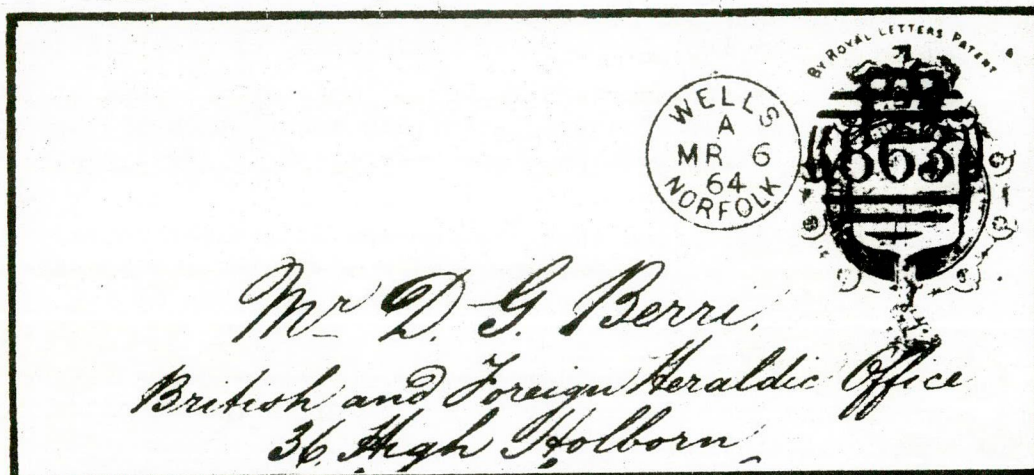 BY ROYAL LETTERS PATENT
WELLS
A
MR 6
64
NORFOLK
Mr D. G. Berri,
British and Foreign Heraldic Office
36, High Holborn